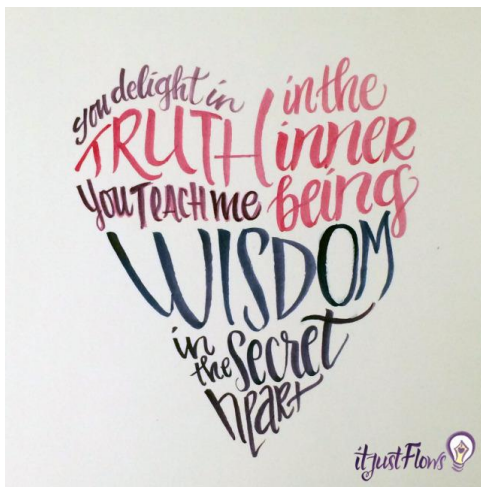 you delight in
TRUTH
in the
inner
being
You TEACH me
WISDOM
in
the secret
heart
itjustFlows